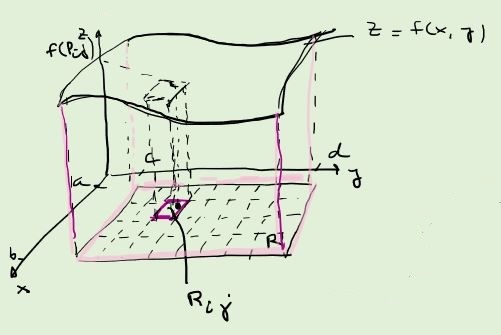 z
f(Pij)
z = f(x, y)
c
d
a
y
R
b
x
Rij